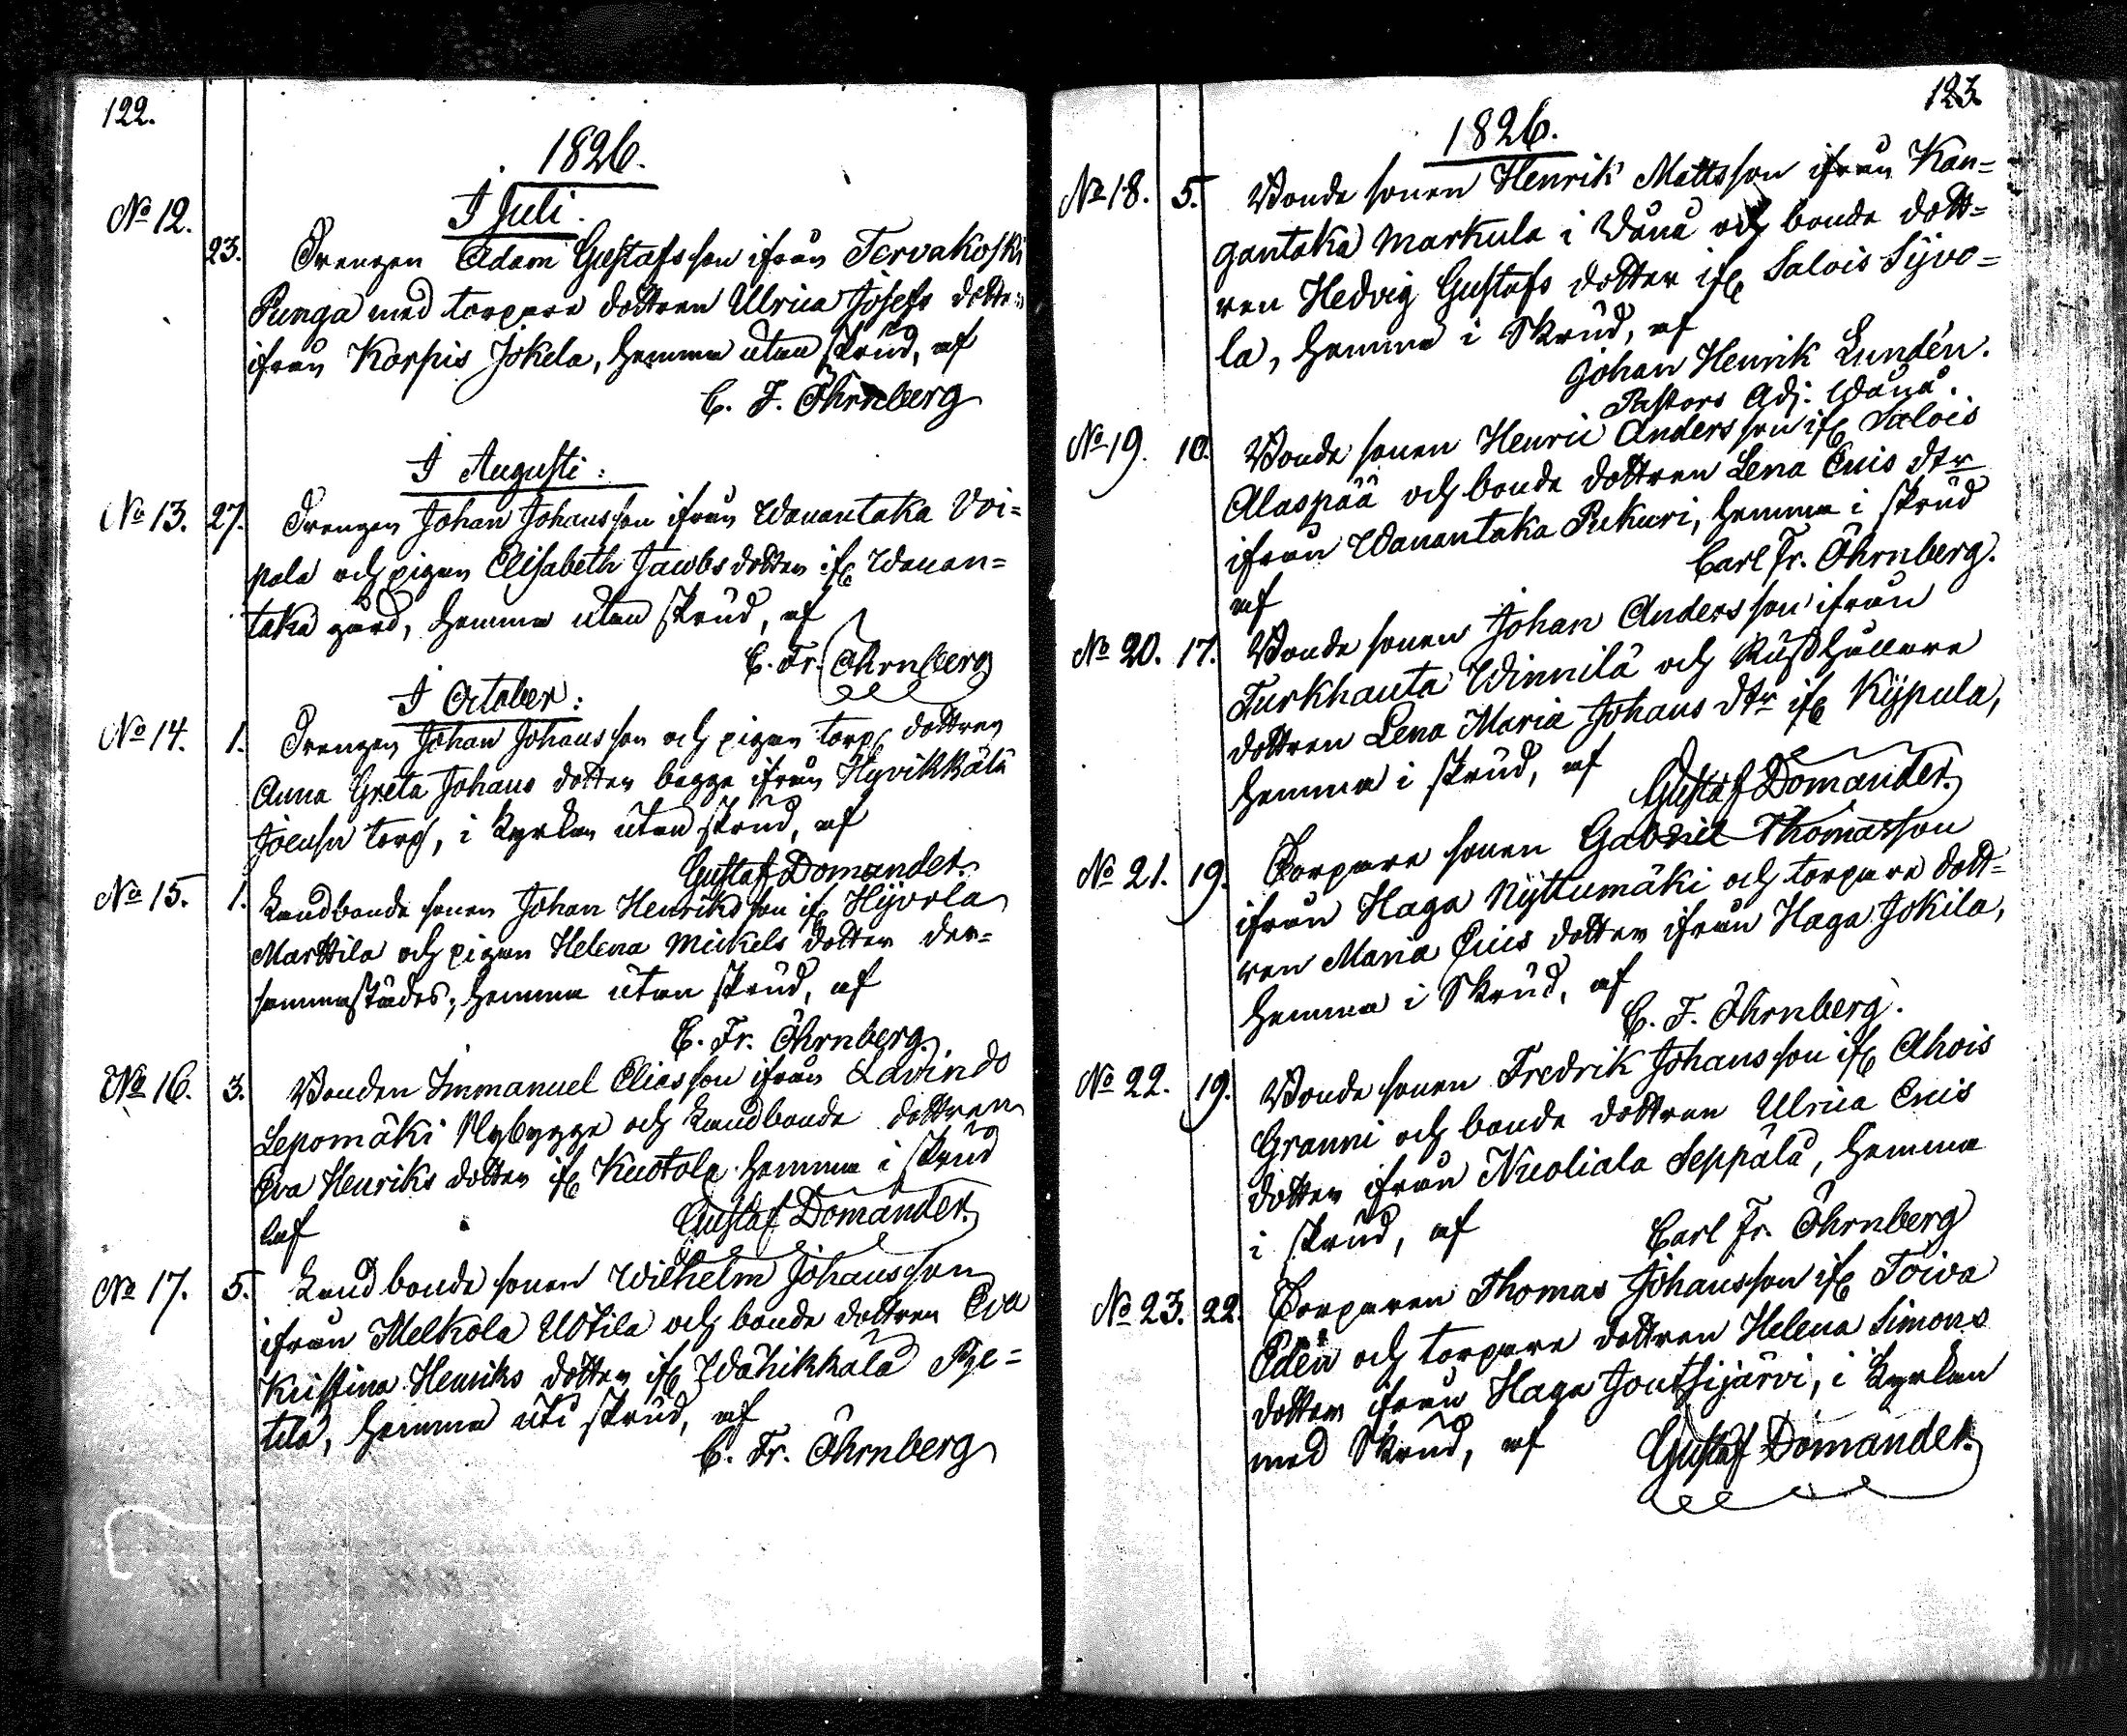 122.
1826.
I Juli.
No 12. 23. Drengen Adam Gustafsson ifrån Tervakoski
Punga med torpare dottren Ulrica Josefs dotter
ifrån Korpis Jokela, hemma utan skrud, af
C. F. Öhrnberg
I Augusti:
No 13. 27. Drengen Johan Johansson ifrån Wanantaka Voi=
pala och pigan Elisabeth Jacobs dotter ifr Wanan=
taka gård, hemma utan skrud, af
C. Fr. Öhrnberg
I October:
No 14. 1. Drengen Johan Johansson och pigan torp dottren
Anna Greta Johans dotter begge ifrån Hyvikkälä
Joensu torp, i Kyrkan utan skrud, af
Gustaf Domander.
No 15. 1. Landbonde sonen Johan Henriksson ifr Hyvola
Marttila och pigan Helena Mickels dotter der=
sammastädes, hemma utan skrud, af
C. Fr. Öhrnberg.
No 16. 3. Bonden Immanuel Eliasson ifrån Lavindo
Lepomäki Nybygge och Landbonde dottren
Eva Henriks dotter ifr Kuotola hemma i skrud
af Gustaf Domander.
No 17. 5. Landbonde sonen Wilhelm Johansson
ifrån Melkola Uotila och bonde dottren Eva
Kristina Henriks dotter ifr Wähikkälä Pie=
tilä, hemma uti skrud, af
C. Fr. Öhrnberg
123.
1826.
No 18. 5. Bonde sonen Henrik Mattsson ifrån Kan=
gantaka Markula i Wånå och bonde dott=
ren Hedvig Gustafs dotter ifr Salois Syvo=
la, hemma i Skrud, af
Johan Henrik Lundén.
Pastors Adj. Wånå.
No 19. 10. Bonde sonen Henric Andersson ifr Salois
Alaspää och bonde dottren Lena Erics dtr
ifrån Wanantaka Pukuri, hemma i skrud
af Carl Fr. Öhrnberg.
No 20. 17. Bonde sonen Johan Andersson ifrån
Turkhauta Winnilä och Rusthållare
dottren Lena Maria Johans dtr ifr Kypula,
hemma i skrud, af
Gustaf Domander.
No 21. 19. Torpare sonen Gabriel Thomasson
ifrån Haga Nyttumäki och torpare dott=
ren Maria Erics dotter ifrån Haga Jokila,
hemma i Skrud, af
C. F. Öhrnberg.
No 22. 19. Bonde sonen Fredrik Johansson ifr Ahois
Granni och bonde dottren Ulrica Erics
dotter ifrån Nuoliala Seppälä, hemma
i skrud, af Carl Fr. Öhrnberg
No 23. 22. Torparen Thomas Johansson ifr Toiva
Edén och torpare dottren Helena Simons
dotter ifrån Haga Joutsijärvi, i Kyrkan
med Skrud, af Gustaf Domander.